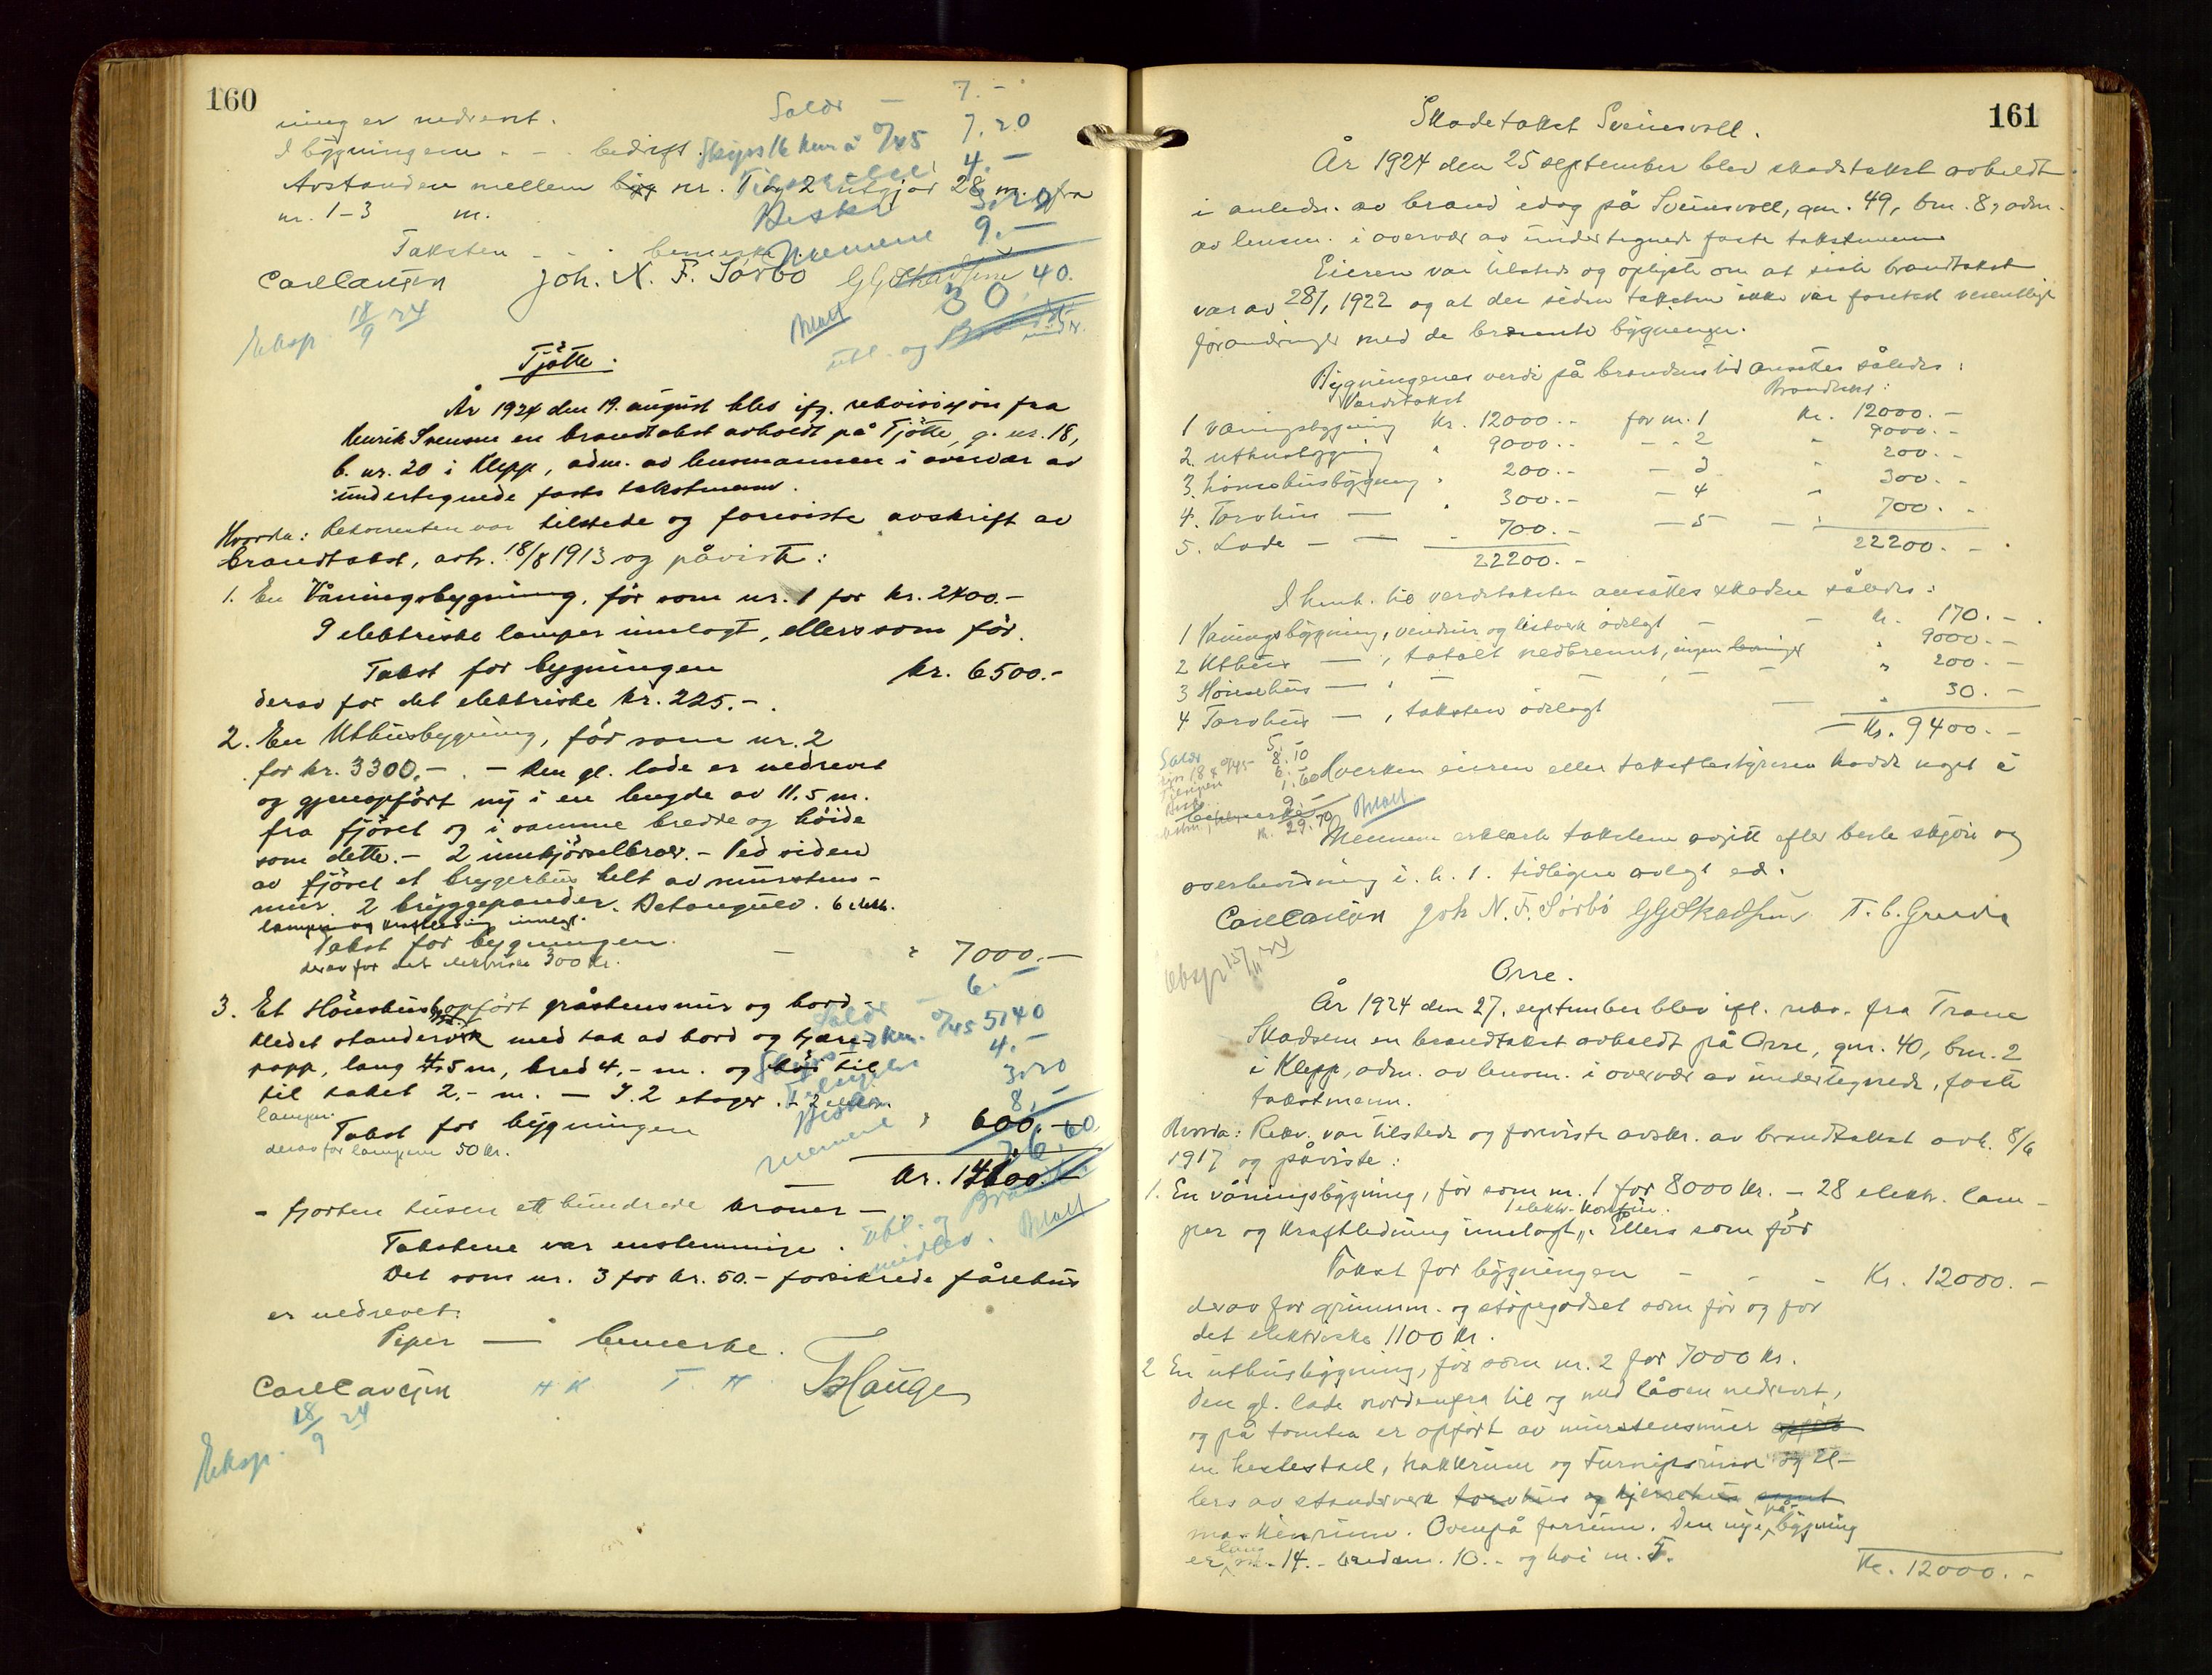 160
ning er nedrevet.
I bygningen - - - bedrift.
Avstanden mellem nr. 1 og 2 utgjør 28 m. fra
nr. 1-3 m.
Taksten - - - bemerke.
Salær - 7.-
Skyss 16 km à 0/45 7.20
4.-
Diskr 3.20
Mennene 9.-
30,40.
Carl Carlsen Joh. N. F. Sørbø
Betalt
Eksp. 18/9 24
utl. og
Tjøtte.
År 1924 den 19. august blev ifg. rekvisisjon fra
Henrik Svensen en brandtakst avholdt på Tjøtte, g. nr. 18,
b. nr. 20 i Klepp, adm. av lensmannen i overvær av
undertegnede faste takstmenn.
Hvorda: Rekvirenten var tilstede og foreviste avskrift av
brandtakst, avh. 18/8 1913 og påviste:
1. En Våningsbygning, før som nr. 1 for kr. 2400.-
9 elektriske lamper innlagt, ellers som før.
Takst for bygningen kr. 6500.-
derav for det elektriske kr. 225.-.
2. En Uthusbygning, før som nr. 2
for kr. 3300,-. - Den gl. lade er nedrevet
og gjenopført ny i en lengde av 11.5 m.
fra fjøset og i samme bredde og høide
som dette. - 2 innkjørselbroer. - Ved siden
av fjøset et bryggerhus helt av murstens-
mur. 2 bryggepander. 6 elekt.
lamper og kraftledning innlagt.
Takst for bygningen. - " 7000.-
derav for det elektriske 300 kr.
3. Et Hønsehus opført gråstensmur og bord-
kledet standerverk med tak av bord og tjære-
papp, lang 4.5 m, bred 4,- m. og høi til
til taket 2,- m. - I 2 etager. - 2 elektr.
lamper.
Takst for bygningen " 600,-
derav for lampene 50 kr.
kr. 14100.-
- fjorten tusen ett hundrede kroner -
Salær - 6.-
Skyss 12 km. 0/45 5,40
4.-
Diskr 3.20
Mennene 8,-
26.60
utl. og
Betalt
Takstene var enstemmige.
Det som nr. 3 for kr. 50.- forsikrede fårehus
er nedrevet.
Piper - " - bemerke.
Carl Carlsen H K T. H. T Hauge
Eksp. 18/9 24
161
Skadetakst Sveinsvoll.
År 1924 den 25 september blev skadetakst avholdt
i anledn. av brand idag på Sveinsvoll, gnr. 49, bnr. 8, adm.
av lensm. i overvær av undertegnede faste takstmenn
Eieren var tilstede og oplyste om at siste brandtakst
var av 28/1 1922 og at der siden taksten ikke var foretat vesentlige
forandringer med de brente bygninger.
Bygningenes verdi på brandens tid ansettes således:
Verditakst Brandtakst:
1 Våningsbygning kr. 12000.- for nr. 1 kr. 12000.-
2. Uthusbygning " 9000.- - - 2 " 9000.-
3. Hønsehusbygning " 200.- - 3 " 200.-
4. Torvhus - " 300.- - 4 " 300.-
5. Lade - - " 700.- - 5 - " 700.-
22200.- 22200.-
I henh. til verditaksten ansettes skaden således:
1 Våningsbygning, vinduer og listverk ødelagt - - kr. 170.-
2 Uthus - , totalt nedbrennt, ingen levninger " 9000.-
3 Hønsehus - " - - " 200.-
4 Torvhus - , taksten ødelagt - " 30.-
Kr. 9400.-
Salær 5.-
8.10
6.-
1.60
9.-
kr. 29.70
Betalt
Hverken eieren eller takstbestyreren hadde noget å
bemerke.
Mennene erklærte taksten avgitt efter beste skjøn og
overbevisning i. h. t. tidligere avlagt ed.
Carl Carlsen Joh N. F. Sørbø T. C. Grude
Eksp 15/11 24
Orre.
År 1924 den 27. september blev ifl. rekv. fra Trane
Skadsem en brandtakst avholdt på Orre, gnr. 40, bnr. 2
i Klepp, adm. av lensm. i overvær av undertegnede, faste
takstmenn.
Hvorda: Rekv. var tilstede og foreviste avskr. av brandtakst avh. 8/6
1917 og påviste:
1. En våningsbygning, før som nr. 1 for 8000 kr. - 28 elektr. lam-
1 elektr. komfur.
per og kraftledning innlagt. Ellers som før
Takst for bygningen - - - Kr. 12000.-
derav for grunnm. og støpegodset som før og for
det elektriske 1100 kr.
2 En uthusbygning, før som nr. 2 for 7000 kr.
Den gl. lade nordenfra til og med låven nedrevet,
og på tomten er opført av murstensmur
en hestestall, hakkrum og turnipsrum og el-
lers av standerverk torvhus og kjerrehus samt
maskinrum. Ovenpå forrum. Den nye på bygning
er lang m. 14.- bred m. 10.- og høi m. 5.
Kr. 12000.-